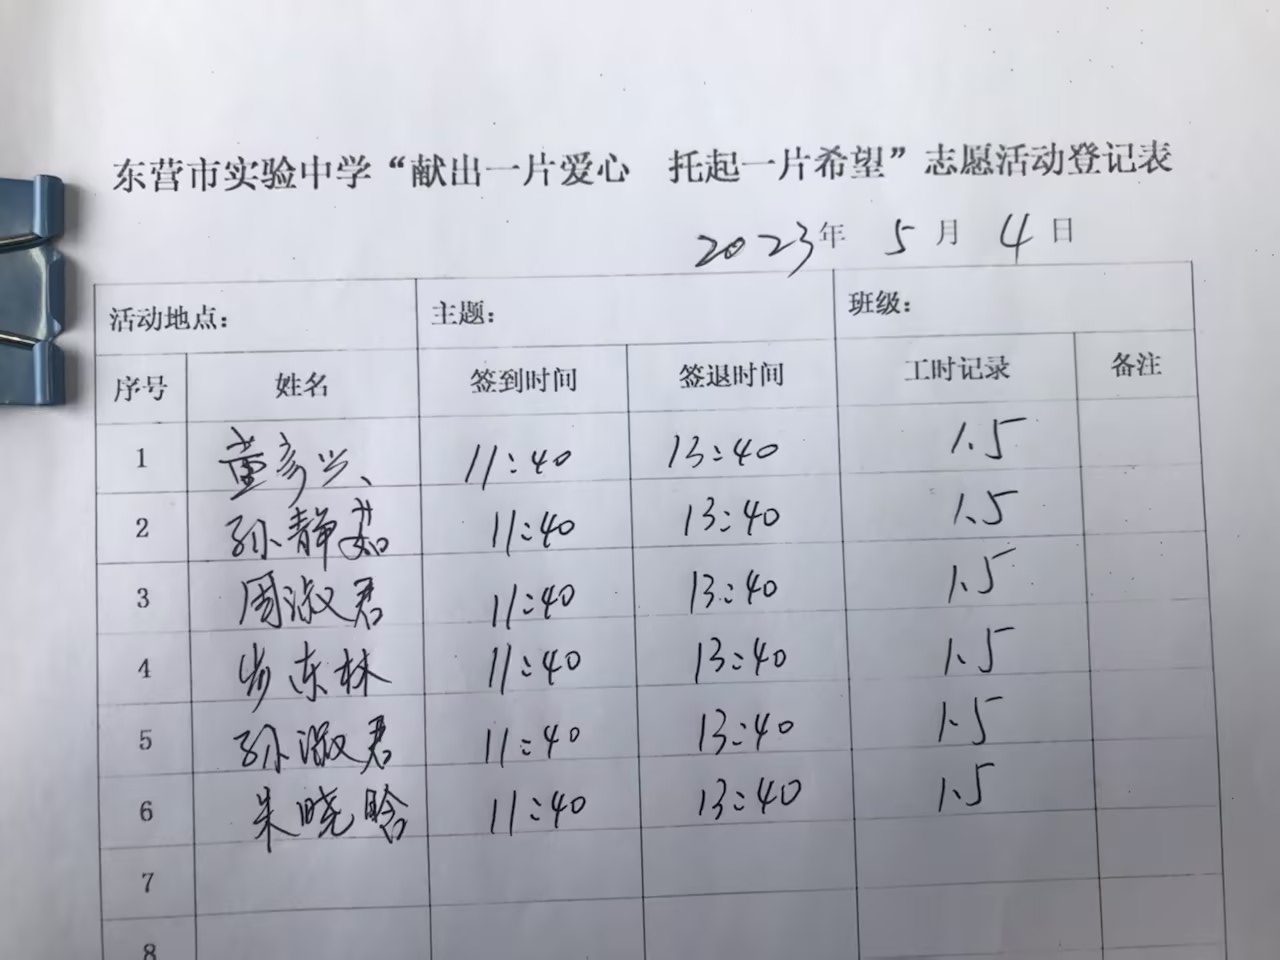 东营市实验中学“献出一片爱心 托起一片希望”志愿活动登记表
2023年 5月 4日
活动地点： 主题： 班级：
序号 姓名 签到时间 签退时间 工时记录 备注
1 董彦兴 11:40 13:40 1.5
2 孙静茹 11:40 13:40 1.5
3 周淑君 11:40 13:40 1.5
4 步东林 11:40 13:40 1.5
5 孙淑君 11:40 13:40 1.5
6 朱晓晗 11:40 13:40 1.5
7
8